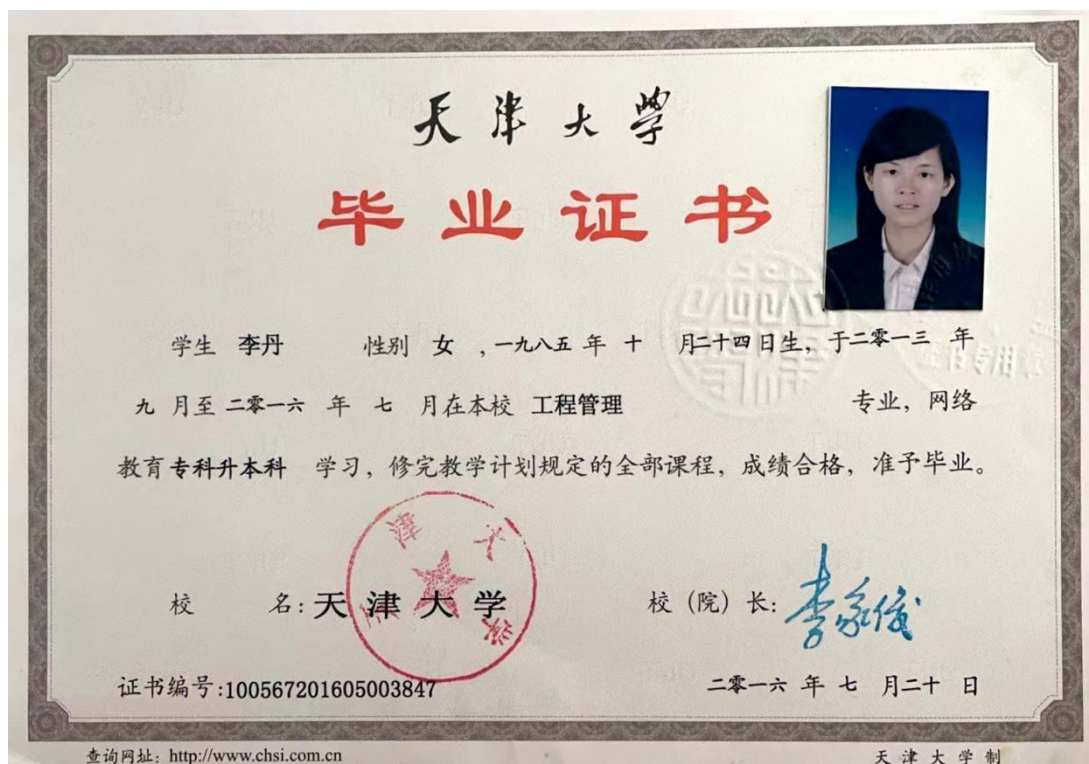 天津大学
毕业证书
学生 李丹 性别 女 ，一九八五 年 十 月二十四日生，于二零一三 年
九 月至 二零一六 年 七 月在本校 工程管理 专业，网络
教育 专科升本科 学习，修完教学计划规定的全部课程，成绩合格，准予毕业。
校 名：天津大学 校（院）长：李家俊
证书编号:100567201605003847 二零一六 年 七 月二十 日
查询网址：http://www.chsi.com.cn 天津大学制